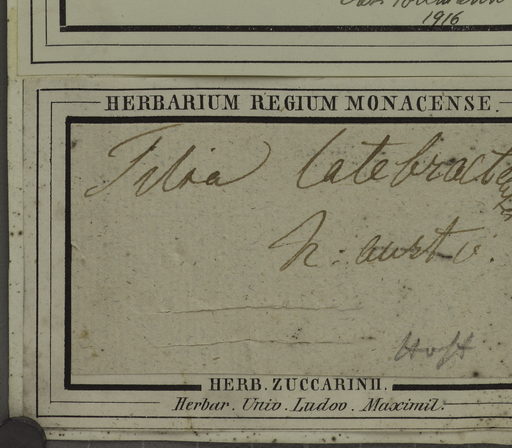 1916
HERBARIUM REGIUM MONACENSE.
Tilia latebracte
h. austr.
HERB. ZUCCARINII.
Herbar. Univ. Ludov. Maximil.